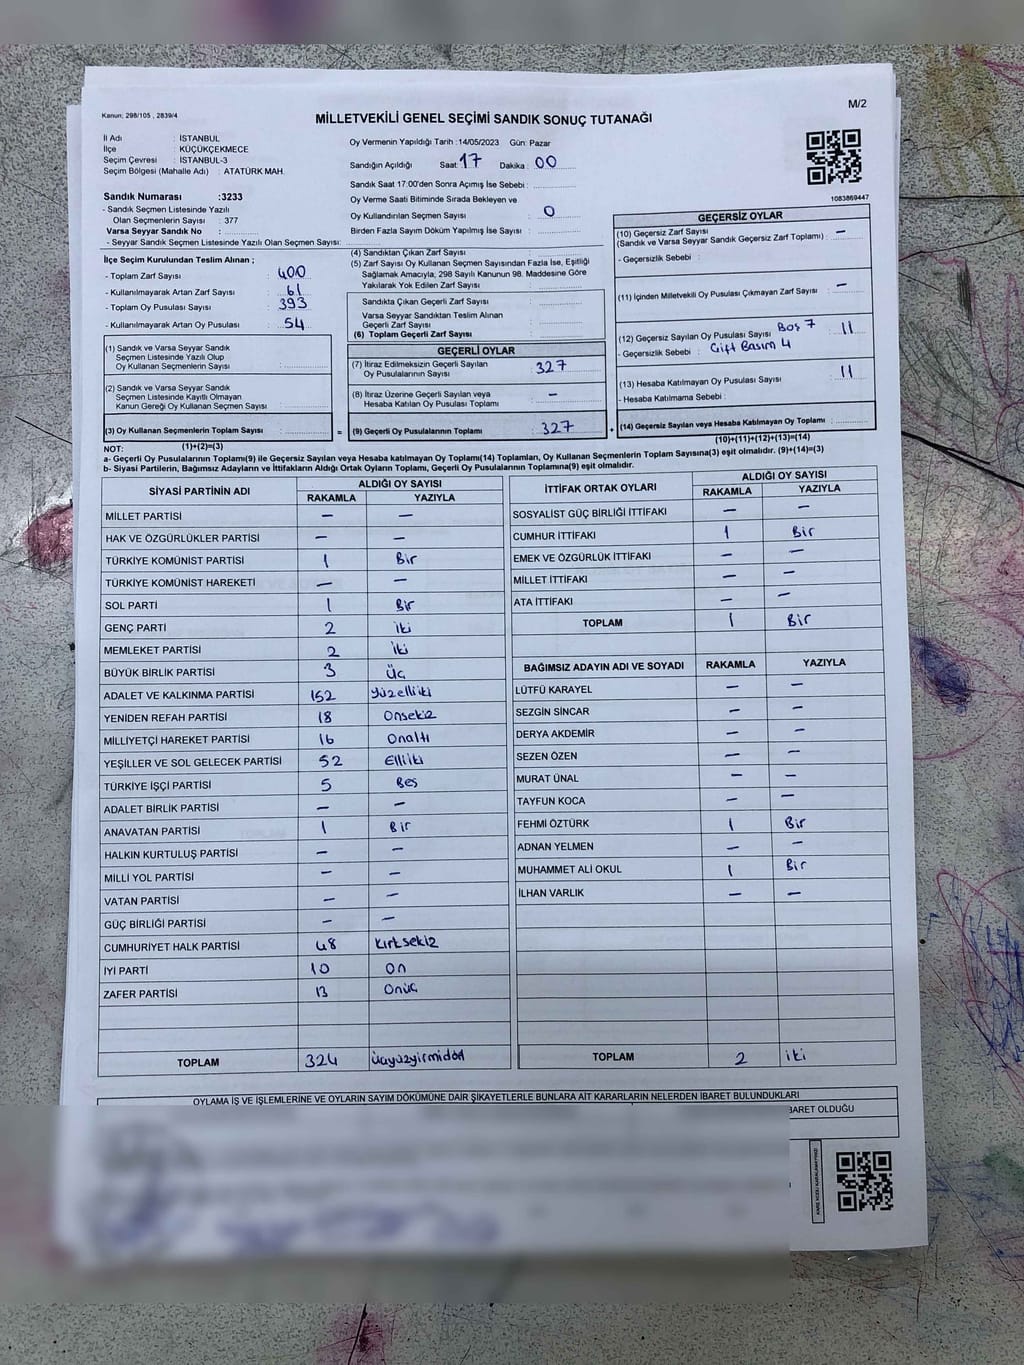 Kanun; 298/105 , 2839/4
M/2
MİLLETVEKİLİ GENEL SEÇİMİ SANDIK SONUÇ TUTANAĞI
İl Adı : İSTANBUL
İlçe : KÜÇÜKÇEKMECE
Seçim Çevresi : İSTANBUL-3
Seçim Bölgesi (Mahalle Adı) : ATATÜRK MAH.
Oy Vermenin Yapıldığı Tarih :14/05/2023 Gün: Pazar
Sandığın Açıldığı Saat: 17 Dakika : 00
Sandık Saat 17:00'den Sonra Açımış İse Sebebi :
Oy Verme Saati Bitiminde Sırada Bekleyen ve
Oy Kullandırılan Seçmen Sayısı : 0
Birden Fazla Sayım Döküm Yapılmış İse Sayısı :
1083869447
Sandık Numarası :3233
- Sandık Seçmen Listesinde Yazılı
Olan Seçmenlerin Sayısı : 377
Varsa Seyyar Sandık No :
- Seyyar Sandık Seçmen Listesinde Yazılı Olan Seçmen Sayısı:
İlçe Seçim Kurulundan Teslim Alınan ;
- Toplam Zarf Sayısı : 400
- Kullanılmayarak Artan Zarf Sayısı : 61
- Toplam Oy Pusulası Sayısı : 393
- Kullanılmayarak Artan Oy Pusulası : 54
(1) Sandık ve Varsa Seyyar Sandık
Seçmen Listesinde Yazılı Olup
Oy Kullanan Seçmenlerin Sayısı :
(2) Sandık ve Varsa Seyyar Sandık
Seçmen Listesinde Kayıtlı Olmayan
Kanun Gereği Oy Kullanan Seçmen Sayısı :
(3) Oy Kullanan Seçmenlerin Toplam Sayısı :
(4) Sandıktan Çıkan Zarf Sayısı :
(5) Zarf Sayısı Oy Kullanan Seçmen Sayısından Fazla İse, Eşitliği
Sağlamak Amacıyla, 298 Sayılı Kanunun 98. Maddesine Göre
Yakılarak Yok Edilen Zarf Sayısı :
Sandıkta Çıkan Geçerli Zarf Sayısı :
Varsa Seyyar Sandıktan Teslim Alınan
Geçerli Zarf Sayısı :
(6) Toplam Geçerli Zarf Sayısı :
GEÇERLİ OYLAR
(7) İtiraz Edilmeksizin Geçerli Sayılan
Oy Pusulalarının Sayısı : 327
(8) İtiraz Üzerine Geçerli Sayılan veya
Hesaba Katılan Oy Pusulası Toplamı : –
= (9) Geçerli Oy Pusulalarının Toplamı : 327 +
GEÇERSİZ OYLAR
(10) Geçersiz Zarf Sayısı
(Sandık ve Varsa Seyyar Sandık Geçersiz Zarf Toplamı) : –
- Geçersizlik Sebebi :
(11) İçinden Milletvekili Oy Pusulası Çıkmayan Zarf Sayısı : –
(12) Geçersiz Sayılan Oy Pusulası Sayısı Boş 7 : 11
- Geçersizlik Sebebi : Çift Basım 4
(13) Hesaba Katılmayan Oy Pusulası Sayısı : 11
- Hesaba Katılmama Sebebi :
(14) Geçersiz Sayılan veya Hesaba Katılmayan Oy Toplamı :
(1)+(2)=(3)
(10)+(11)+(12)+(13)=(14)
NOT:
a- Geçerli Oy Pusulalarının Toplamı(9) ile Geçersiz Sayılan veya Hesaba katılmayan Oy Toplamı(14) Toplamları, Oy Kullanan Seçmenlerin Toplam Sayısına(3) eşit olmalıdır. (9)+(14)=(3)
b- Siyasi Partilerin, Bağımsız Adayların ve İttifakların Aldığı Ortak Oyların Toplamı, Geçerli Oy Pusulalarının Toplamına(9) eşit olmalıdır.
SİYASİ PARTİNİN ADI ALDIĞI OY SAYISI
RAKAMLA YAZIYLA
MİLLET PARTİSİ – –
HAK VE ÖZGÜRLÜKLER PARTİSİ – –
TÜRKİYE KOMÜNİST PARTİSİ 1 Bir
TÜRKİYE KOMÜNİST HAREKETİ – –
SOL PARTİ 1 Bir
GENÇ PARTİ 2 iki
MEMLEKET PARTİSİ 2 iki
BÜYÜK BİRLİK PARTİSİ 3 Üç
ADALET VE KALKINMA PARTİSİ 152 Yüzelliiki
YENİDEN REFAH PARTİSİ 18 Onsekiz
MİLLİYETÇİ HAREKET PARTİSİ 16 Onaltı
YEŞİLLER VE SOL GELECEK PARTİSİ 52 Elliiki
TÜRKİYE İŞÇİ PARTİSİ 5 Beş
ADALET BİRLİK PARTİSİ – –
ANAVATAN PARTİSİ 1 Bir
HALKIN KURTULUŞ PARTİSİ – –
MİLLİ YOL PARTİSİ – –
VATAN PARTİSİ – –
GÜÇ BİRLİĞİ PARTİSİ – –
CUMHURİYET HALK PARTİSİ 48 Kırksekiz
İYİ PARTİ 10 On
ZAFER PARTİSİ 13 Onüç
TOPLAM 324 Üçyüzyirmidört
İTTİFAK ORTAK OYLARI ALDIĞI OY SAYISI
RAKAMLA YAZIYLA
SOSYALİST GÜÇ BİRLİĞİ İTTİFAKI – –
CUMHUR İTTİFAKI 1 Bir
EMEK VE ÖZGÜRLÜK İTTİFAKI – –
MİLLET İTTİFAKI – –
ATA İTTİFAKI – –
TOPLAM 1 Bir
BAĞIMSIZ ADAYIN ADI VE SOYADI RAKAMLA YAZIYLA
LÜTFÜ KARAYEL – –
SEZGİN SİNCAR – –
DERYA AKDEMİR – –
SEZEN ÖZEN – –
MURAT ÜNAL – –
TAYFUN KOCA – –
FEHMİ ÖZTÜRK 1 Bir
ADNAN YELMEN – –
MUHAMMET ALİ OKUL 1 Bir
İLHAN VARLIK – –
TOPLAM 2 iki
OYLAMA İŞ VE İŞLEMLERİNE VE OYLARIN SAYIM DÖKÜMÜNE DAİR ŞİKAYETLERLE BUNLARA AİT KARARLARIN NELERDEN İBARET BULUNDUKLARI
BARET OLDUĞU